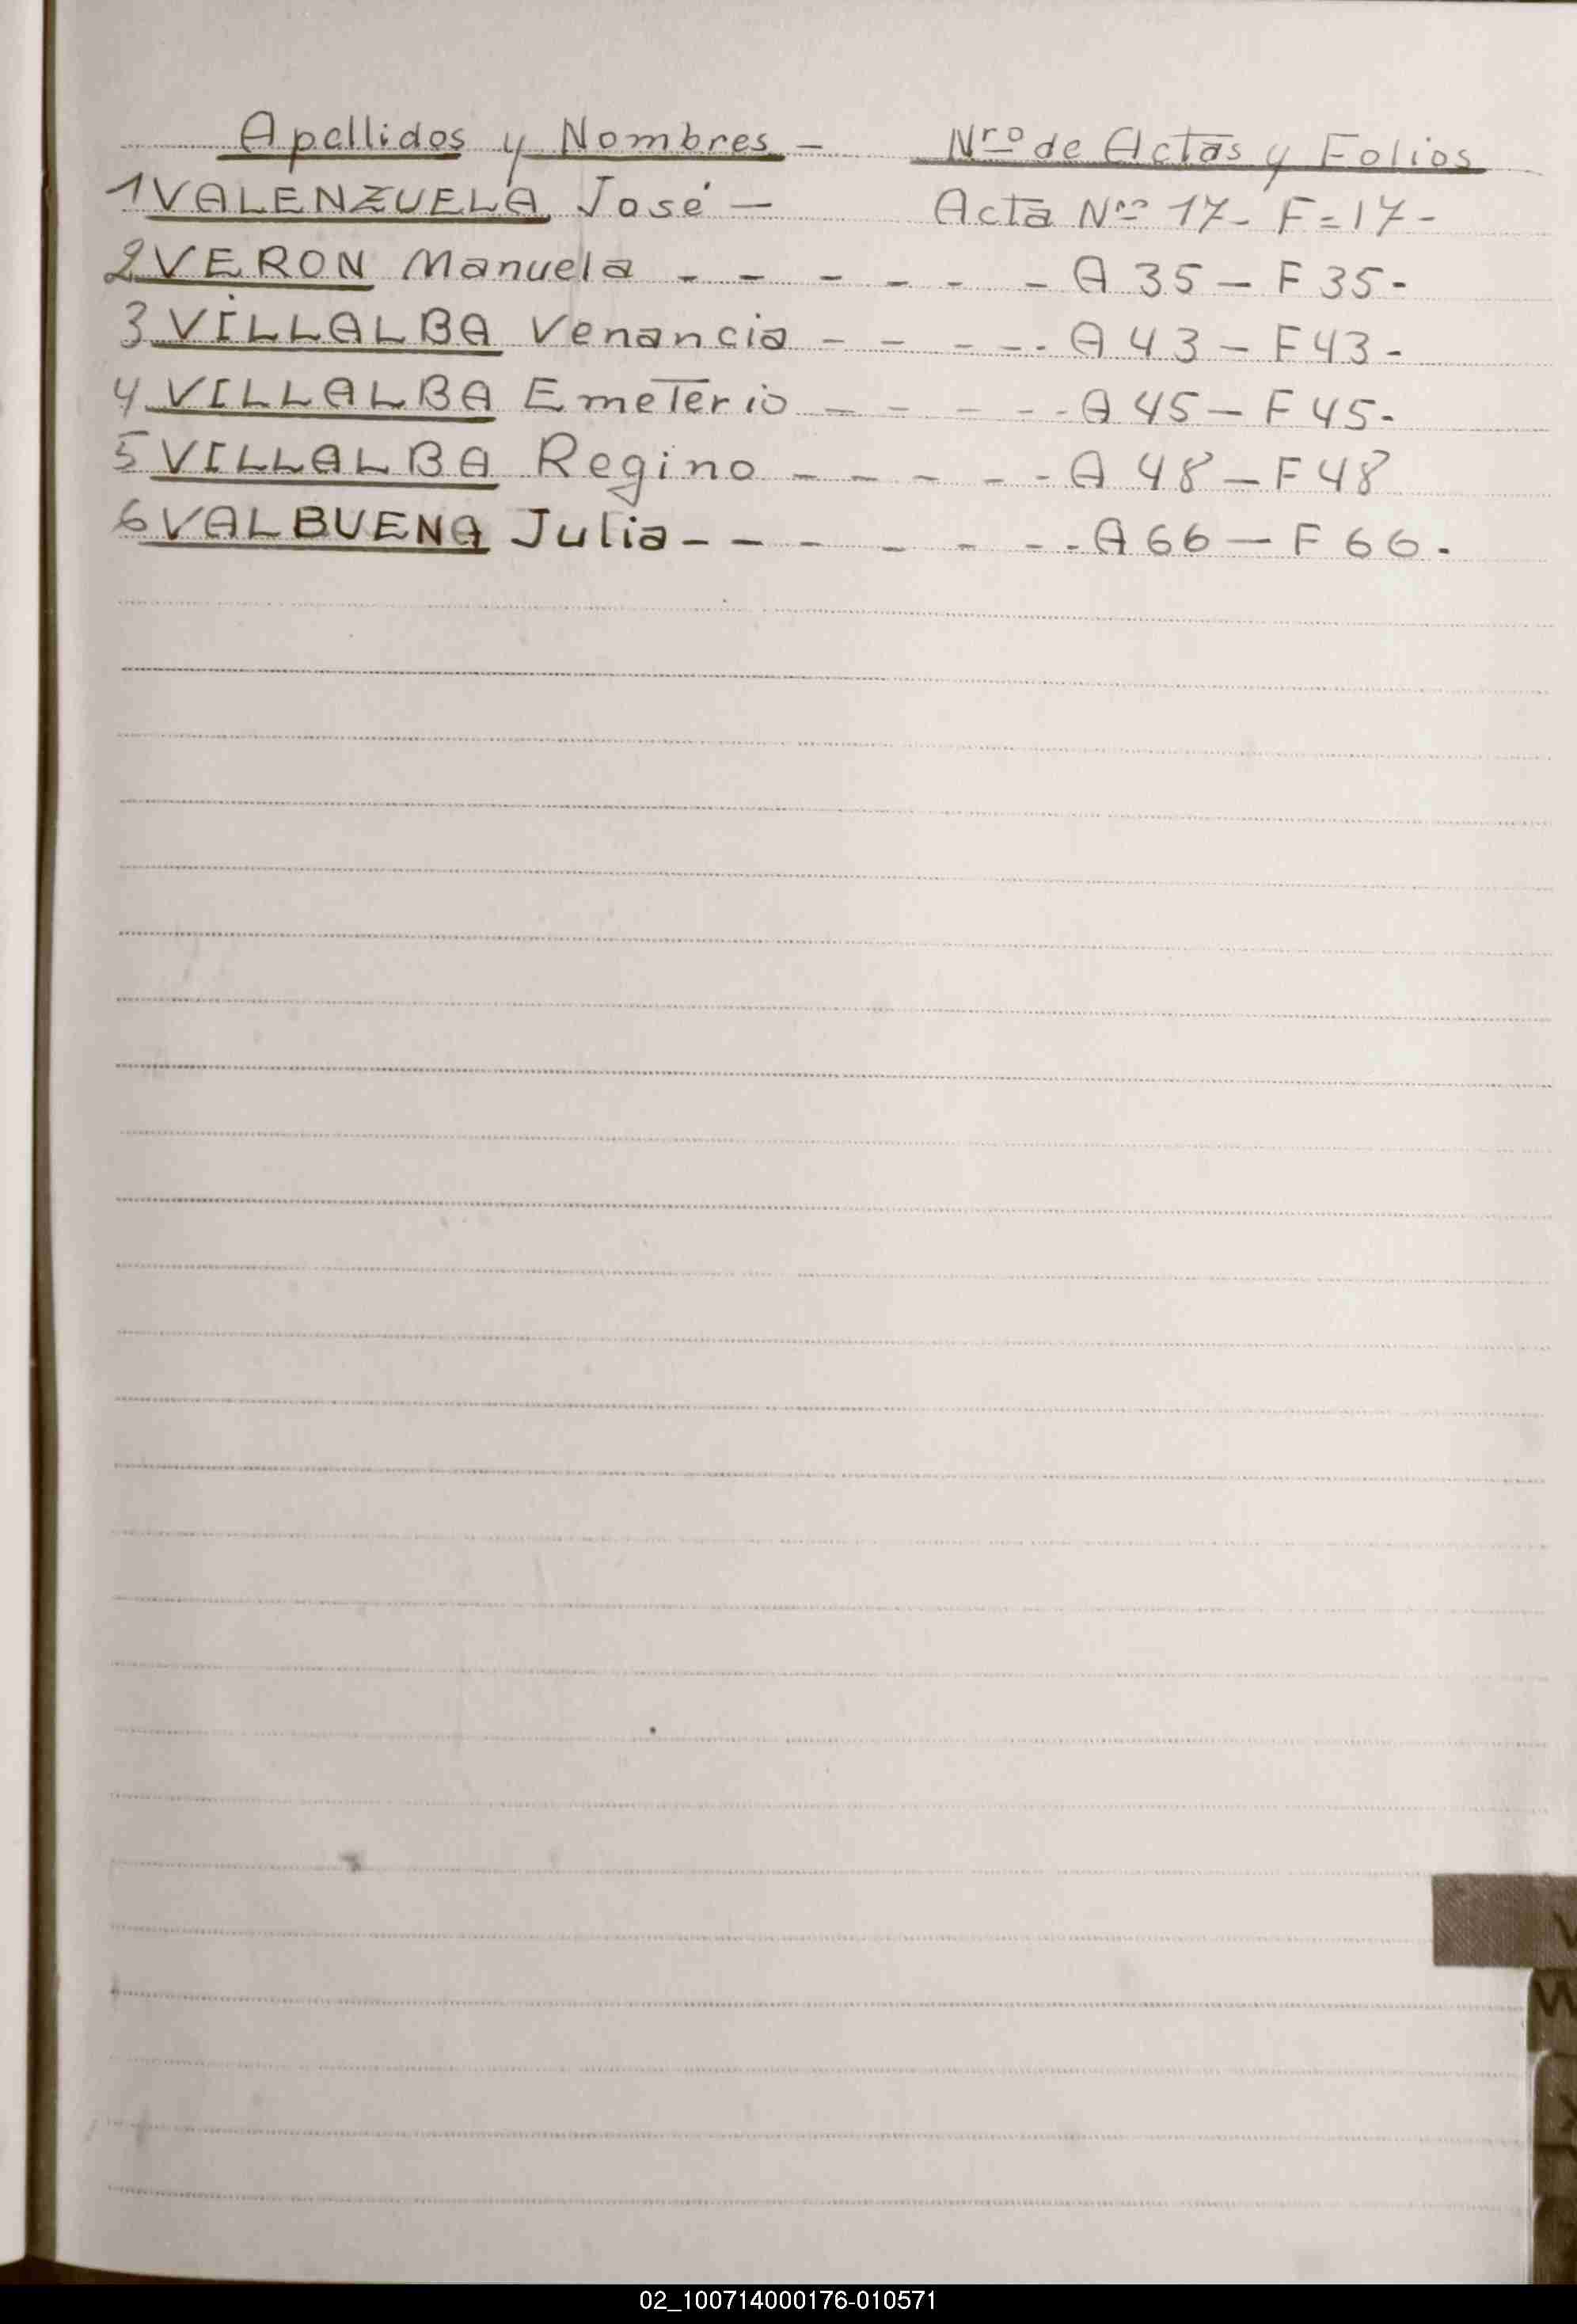 Apellidos y Nombres - Nrº de Actas y Folios
1 VALENZUELA, José — Acta Nrº 17- F=17-
2 VERON Manuela - - - - - - A 35 - F 35-
3 VILLALBA Venancia - - - - - - A 43 - F 43-
4 VILLALBA Emeterio - - - - - A 45 - F 45-
5 VILLALBA Regino - - - - - A 48 - F 48
6 VALBUENA Julia - - - - - - - A 66 - F 66.
V
W
02_100714000176-010571